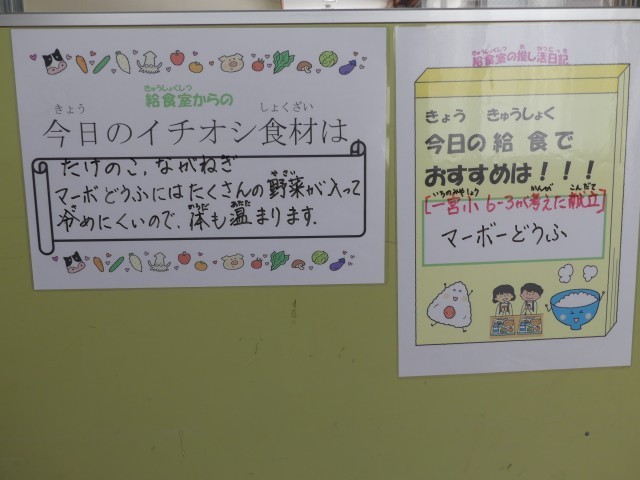 きゅうしょくしつ
給食室からの
きょう しょくざい
今日のイチオシ食材は
たけのこ、ながねぎ
やさい
マーボどうふにはたくさんの野菜が入って
さ からだ あたた
冷めにくいので、体も温まります。
きゅうしょくしつ お かつにっき
給食室の推し活日記
きょう きゅうしょく
今日の給食で
おすすめは!!!
いちのみやしょう かんが こんだて
[一宮小 6-3が考えた献立]
マーボーどうふ